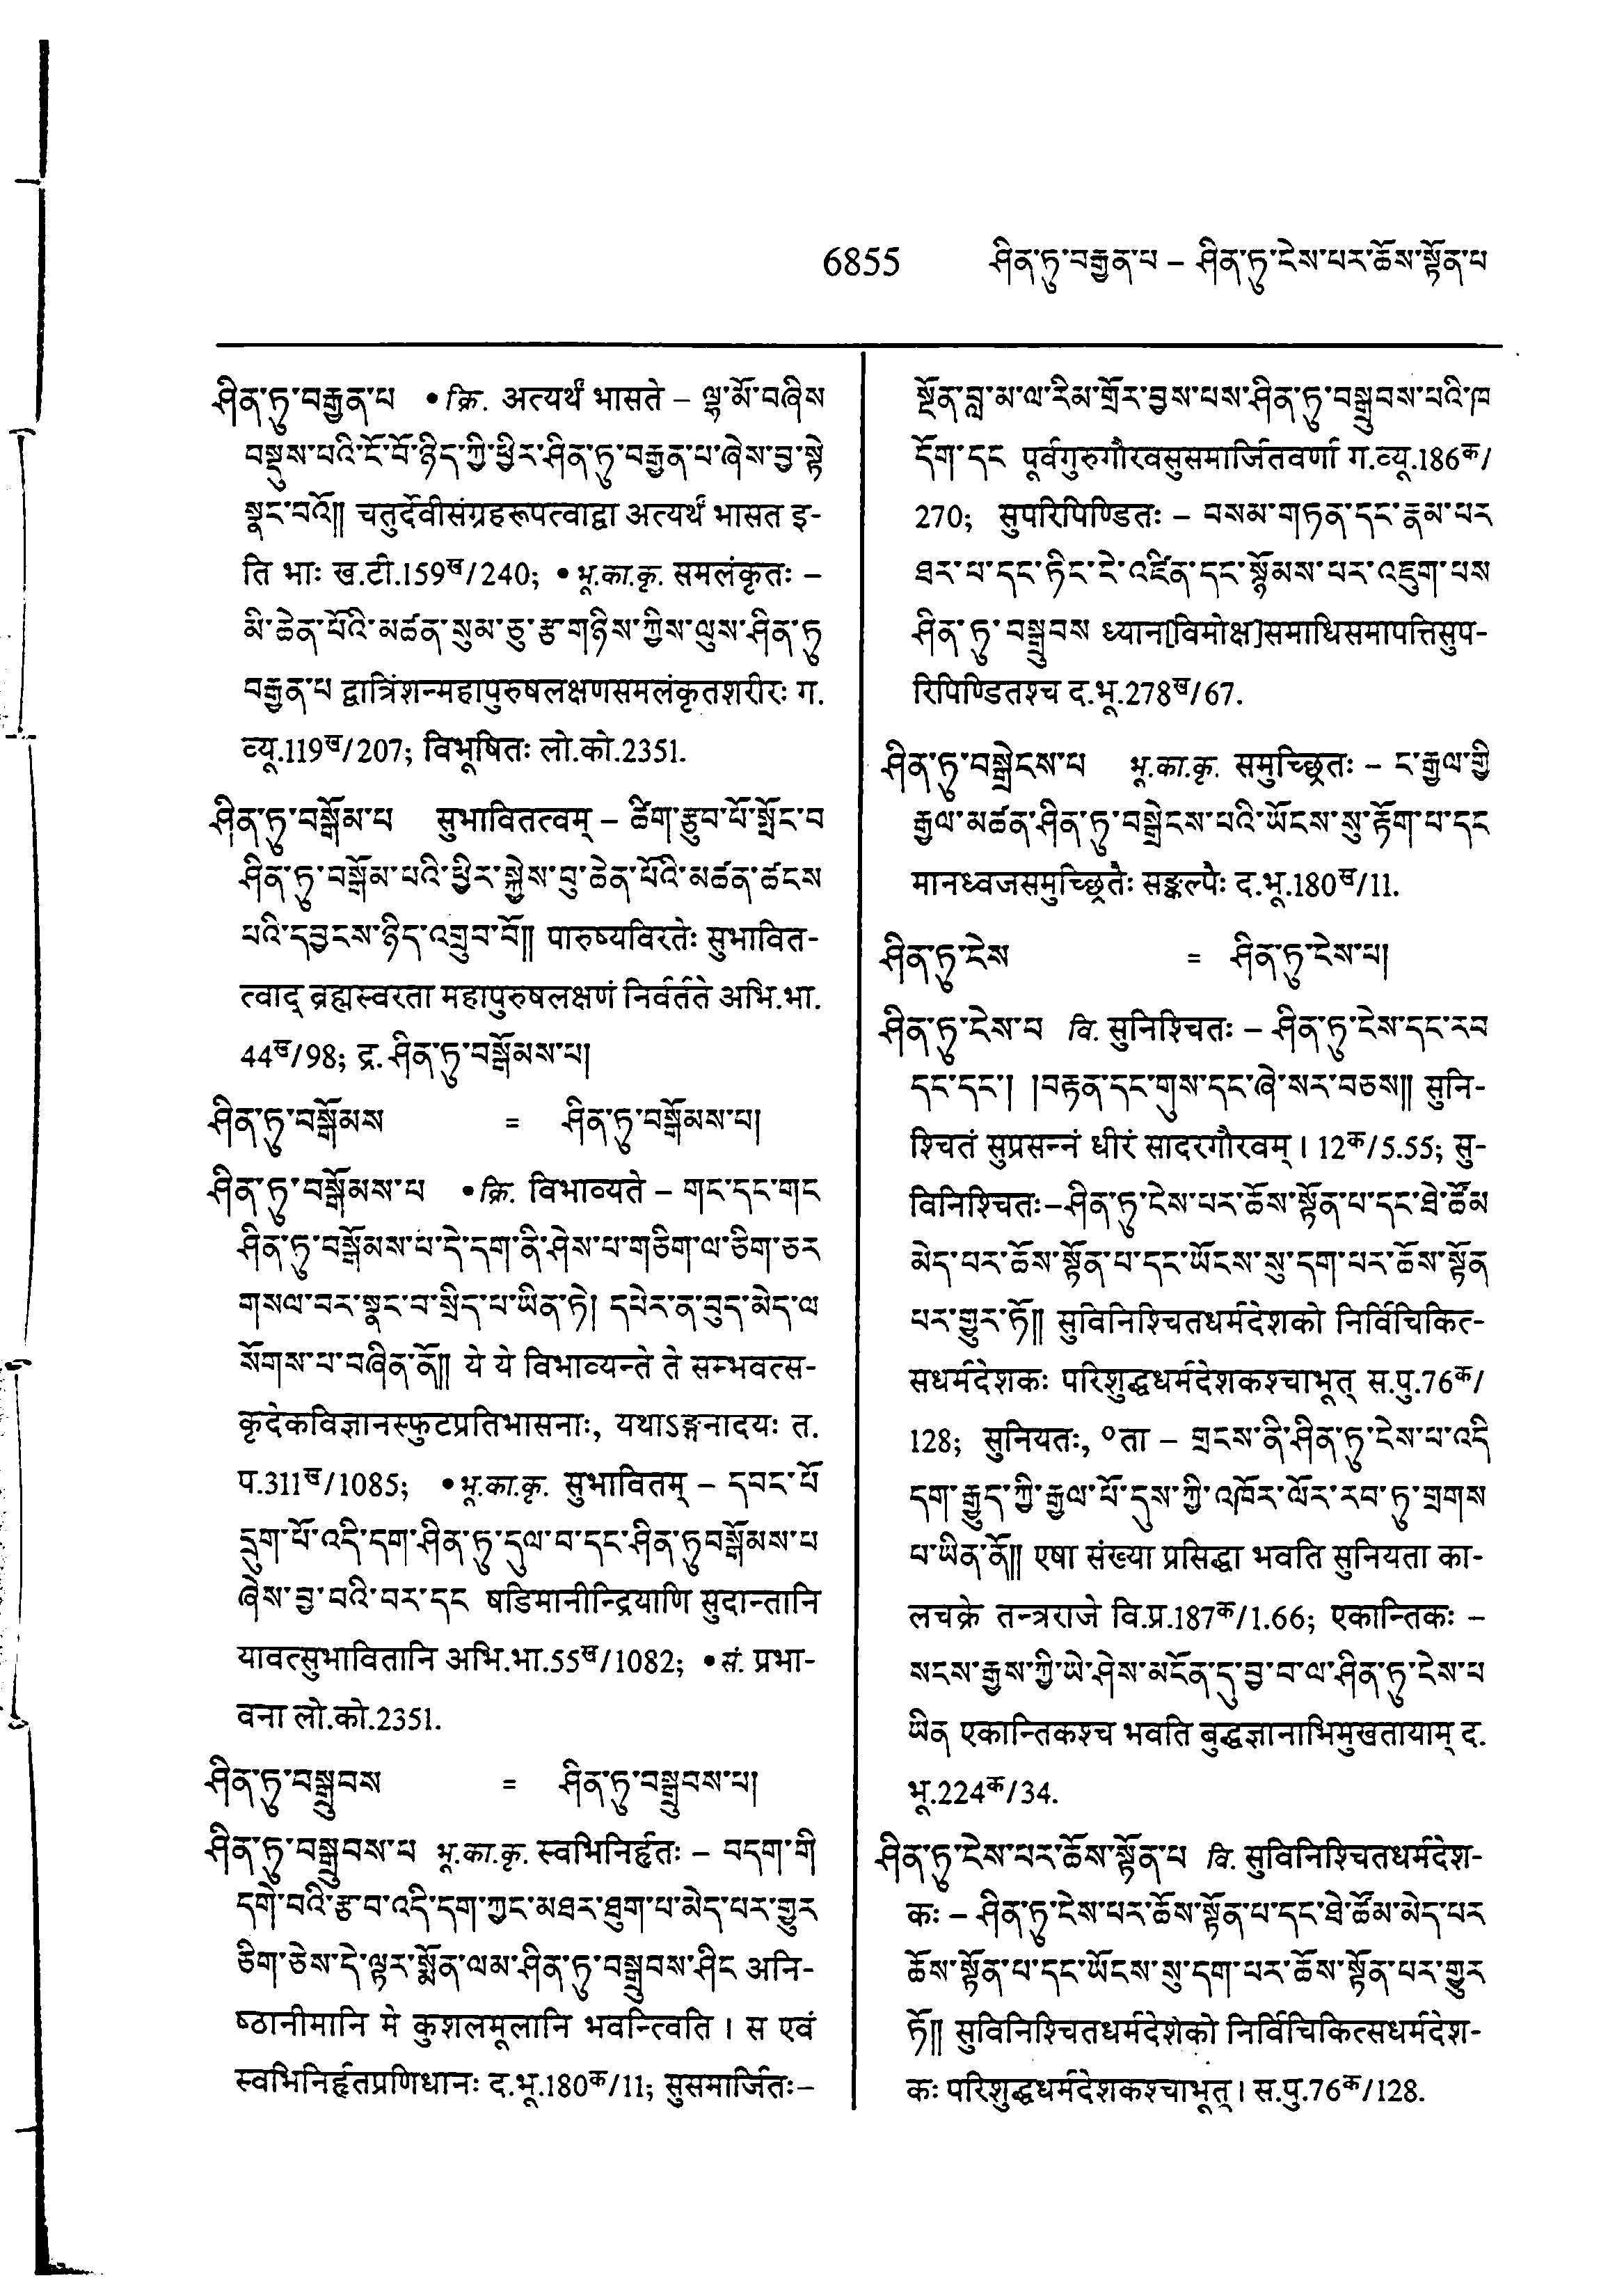 6855 ཤིན་ཏུ་བརྒྱན་པ – ཤིན་ཏུ་ངེས་པར་ཆོས་སྟོན་པ
ཤིན་ཏུ་བརྒྱན་པ • क्रि. अत्यर्थं भासते – ལྷ་མོ་བཞིས
བསྡུས་པའི་ངོ་བོ་ཉིད་ཀྱི་ཕྱིར་ཤིན་ཏུ་བརྒྱན་པ་ཞེས་བྱ་སྟེ
སྣང་བའོ༎ चतुर्देवीसंग्रहरूपत्वाद्वा अत्यर्थं भासत इ-
ति भाः ख.टी.159ख/240; • भू.का.कृ. समलंकृतः –
མི་ཆེན་པོའི་མཚན་སུམ་ཅུ་རྩ་གཉིས་ཀྱིས་ལུས་ཤིན་ཏུ
བརྒྱན་པ द्वात्रिंशन्महापुरुषलक्षणसमलंकृतशरीरः ग.
व्यू.119ख/207; विभूषितः लो.को.2351.
ཤིན་ཏུ་བསྒོམ་པ सुभावितत्वम् – ཚིག་རྩུབ་པོ་སྤོང་བ
ཤིན་ཏུ་བསྒོམ་པའི་ཕྱིར་སྐྱེས་བུ་ཆེན་པོའི་མཚན་ཚངས
པའི་དབྱངས་ཉིད་འགྲུབ་བོ༎ पारुष्यविरतेः सुभावित-
त्वाद् ब्रह्मस्वरता महापुरुषलक्षणं निर्वर्तते अभि.भा.
44ख/98; द्र. ཤིན་ཏུ་བསྒོམས་པ།
ཤིན་ཏུ་བསྒོམས = ཤིན་ཏུ་བསྒོམས་པ།
ཤིན་ཏུ་བསྒོམས་པ • क्रि. विभाव्यते – གང་དང་གང
ཤིན་ཏུ་བསྒོམས་པ་དེ་དག་ནི་ཤེས་པ་གཅིག་ལ་ཅིག་ཅར
གསལ་བར་སྣང་བ་སྲིད་པ་ཡིན་ཏེ། དཔེར་ན་བུད་མེད་ལ
སོགས་པ་བཞིན་ནོ༎ ये ये विभाव्यन्ते ते सम्भवत्स-
कृदेकविज्ञानस्फुटप्रतिभासनाः, यथाऽङ्गनादयः त.
प.311ख/1085; • भू.का.कृ. सुभावितम् – དབང་པོ
དྲུག་པོ་འདི་དག་ཤིན་ཏུ་དུལ་བ་དང་ཤིན་ཏུབསྒོམས་པ
ཞེས་བྱ་བའི་བར་དང षडिमानीन्द्रियाणि सुदान्तानि
यावत्सुभावितानि अभि.भा.55ख/1082; • सं. प्रभा-
वना लो.को.2351.
ཤིན་ཏུ་བསྒྲུབས = ཤིན་ཏུ་བསྒྲུབས་པ།
ཤིན་ཏུ་བསྒྲུབས་པ भू.का.कृ. स्वभिनिर्हृतः – བདག་གི
དགེ་བའི་རྩ་བ་འདི་དག་ཀྱང་མཐར་ཐུག་པ་མེད་པར་གྱུར
ཅིག་ཅེས་དེ་ལྟར་སྨོན་ལམ་ཤིན་ཏུ་བསྒྲུབས་ཤིང अनि-
ष्ठानीमानि मे कुशलमूलानि भवन्त्विति । स एवं
स्वभिनिर्हृतप्रणिधानः द.भू.180क/11; सुसमार्जितः–
སྔོན་བླ་མ་ལ་རིམ་གྲོར་བྱས་པས་ཤིན་ཏུ་བསྒྲུབས་པའི་ཁ
དོག་དང पूर्वगुरुगौरवसुसमार्जितवर्णा ग.व्यू.186क/
270; सुपरिपिण्डितः – བསམ་གཏན་དང་རྣམ་པར
ཐར་པ་དང་ཏིང་ངེ་འཛིན་དང་སྙོམས་པར་འཇུག་པས
ཤིན་ཏུ་བསྒྲུབས ध्यान[विमोक्ष]समाधिसमापत्तिसुप-
रिपिण्डितश्च द.भू.278ख/67.
ཤིན་ཏུ་བསྒྲེངས་པ भू.का.कृ. समुच्छ्रितः – ང་རྒྱལ་གྱི
རྒྱལ་མཚན་ཤིན་ཏུ་བསྒྲེངས་པའི་ཡོངས་སུ་རྟོག་པ་དང
मानध्वजसमुच्छ्रितैः सङ्कल्पैः द.भू.180ख/11.
ཤིན་ཏུ་ངེས = ཤིན་ཏུ་ངེས་པ།
ཤིན་ཏུ་ངེས་པ वि. सुनिश्चितः – ཤིན་ཏུ་ངེས་དང་རབ
དང་དང་། །བརྟན་དང་གུས་དང་ཞེ་སར་བཅས༎ सुनि-
श्चितं सुप्रसन्नं धीरं सादरगौरवम् । 12क/5.55; सु-
विनिश्चितः–ཤིན་ཏུ་ངེས་པར་ཆོས་སྟོན་པ་དང་ཐེ་ཚོམ
མེད་པར་ཆོས་སྟོན་པ་དང་ཡོངས་སུ་དག་པར་ཆོས་སྟོན
པར་གྱུར་ཏོ༎ सुविनिश्चितधर्मदेशको निर्विचिकित्-
सधर्मदेशकः परिशुद्धधर्मदेशकश्चाभूत् स.पु.76क/
128; सुनियतः, °ता – གྲངས་ནི་ཤིན་ཏུ་ངེས་པ་འདི
དག་རྒྱུད་ཀྱི་རྒྱལ་པོ་དུས་ཀྱི་འཁོར་ལོར་རབ་ཏུ་གྲགས
པ་ཡིན་ནོ༎ एषा संख्या प्रसिद्धा भवति सुनियता का-
लचक्रे तन्त्रराजे वि.प्र.187क/1.66; एकान्तिकः –
སངས་རྒྱས་ཀྱི་ཡེ་ཤེས་མངོན་དུ་བྱ་བ་ལ་ཤིན་ཏུ་ངེས་པ
ཡིན एकान्तिकश्च भवति बुद्धज्ञानाभिमुखतायाम् द.
भू.224क/34.
ཤིན་ཏུ་ངེས་པར་ཆོས་སྟོན་པ वि. सुविनिश्चितधर्मदेश-
कः – ཤིན་ཏུ་ངེས་པར་ཆོས་སྟོན་པ་དང་ཐེ་ཚོམ་མེད་པར
ཆོས་སྟོན་པ་དང་ཡོངས་སུ་དག་པར་ཆོས་སྟོན་པར་གྱུར
ཏོ༎ सुविनिश्चितधर्मदेशको निर्विचिकित्सधर्मदेश-
कः परिशुद्धधर्मदेशकश्चाभूत् । स.पु.76क/128.